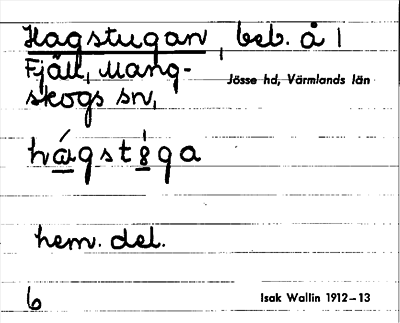 Hagstugan, beb. å 1
Fjäll, Mang-
skogs sn,
Jösse hd, Värmlands län
hágst8́ga
hem. del.
6
Isak Wallin 1912–13